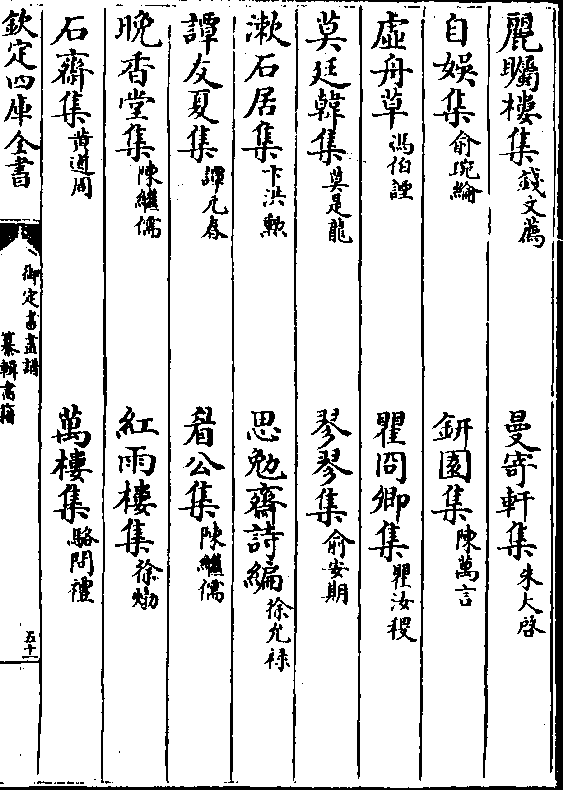 麗矚樓集錢文薦　曼寄軒集朱大啓
自娛集俞琬綸　硏園集陳萬言
虛舟草馮伯諲　瞿冏卿集瞿汝稷
莫廷韓集莫是龍　琴琴集俞安期
漱石居集卞洪勲　思勉齋詩編徐允祿
譚友夏集譚元春　眉公集陳繼儒
晚香堂集陳繼儒　紅雨樓集徐𤊹
石齋集黃道周　萬樓集駱問禮
欽定四庫全書　御定書畫譜　纂輯書籍　五十一